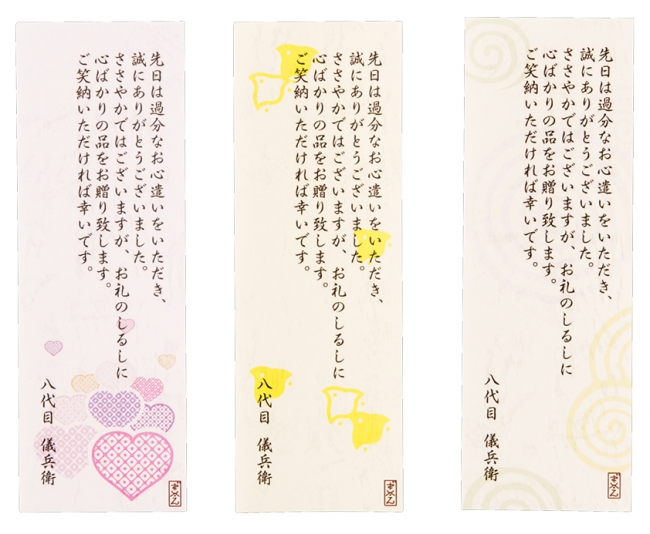 先日は過分なお心遣いをいただき、
誠にありがとうございました。
ささやかではございますが、お礼のしるしに
心ばかりの品をお贈り致します。
ご笑納いただければ幸いです。
八代目 儀兵衛
ぎへゑ
先日は過分なお心遣いをいただき、
誠にありがとうございました。
ささやかではございますが、お礼のしるしに
心ばかりの品をお贈り致します。
ご笑納いただければ幸いです。
八代目 儀兵衛
先日は過分なお心遣いをいただき、
誠にありがとうございました。
ささやかではございますが、お礼のしるしに
心ばかりの品をお贈り致します。
ご笑納いただければ幸いです。
八代目 儀兵衛